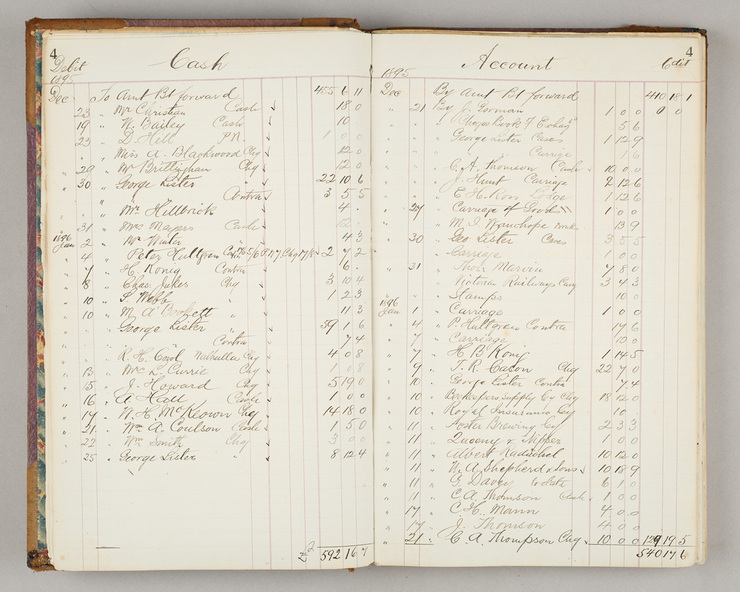 4
Debit Cash
1895
Dec To Amt Bt forward 455 6 11
23 " Mr Christian Cash 18 0
19 " W. Bailey Cash 10
23 " D. Hill P.N. 1 0 0
" Miss A. Blackwood Chq 12 0
29 " Mr Brittlyhan Chq 12 0
30 " George Lister " 22 10 6
" Contra 3 5 5
" Mr Hillbrick 4
31 " Mrs Mayers Cash
1896
Jan 2 " Mr Winter 4 3
4 " Peter Hultgran 2 7 2
7 " H. Konig Contra 6
8 " Chas Juker Chq 3 10 4
10 " S. Webb " 1 2 3
10 " M. A. Corbett " 11 3
" George Lister " 39 1 6
" Contra 7 4
" R. H. Cowl Walhalla Chq 4 0 8
13 " Mrs L. Currie Chq 1 0 8
15 " J. Howard Chq 5 19 0
16 " A Hall Cash 1 0 0
17 " W. H. McKeown Chq 14 18 0
21 " Wm A. Coulson Cash 1 5 0
22 " Wm Smith Chq 3 0 0
25 " George Lister " 8 12 4
£ 592 16 7
4
Account Cdit
1895
Dec By Amt Bt forward 410 18 1
" 21 By J. Gorman 1 0 0
5 6
" George Lister Cases 1 12 9
" Carriage 1 6
" C. A. Thomson Cash 10 0 0
" J. Hunt Carriage 2 12 6
" E. H. 1 12 6
" 27 " Carriage of Goods 1 0 0
" M. J. Wauchope 13 9
" 30 " Geo Lister Cases 3 5 5
" Carriage 1 0 0
" 31 " Marvin 7 8 0
" Victorian Railways Chq 3 4 3
" Stamps 10 0
1896
Jan 1 " Carriage 1 0 0
" 4 " P Hultgran Contra 17 6
" 7 " Carriage 10 0
" 7 " H. B. Konig 1 14 5
" 9 " T. R. Eaton Chq 22 7 0
" 10 " George Lister Contra 7 4
" 10 " Beekeepers Supply Co Chq 18 12 0
" 10 " Royal Insurance Coy 10
" 11 " Foster Brewing Coy 2 3 3
" 11 " 1 0 0
" 11 " Albert 10 12 0
" 11 " W. A. Shepherd & Sons 10 18 9
" 11 " G. Davey 6 1 0
" 11 " C. A. Thomson Cash 1 0 0
" 17 " C. H. Mann 4 0 0
" 17 " J. Thomson 4 0 0
" 21 " C. A. Thompson Chq 10 0 0 129 19 5
540 17 6